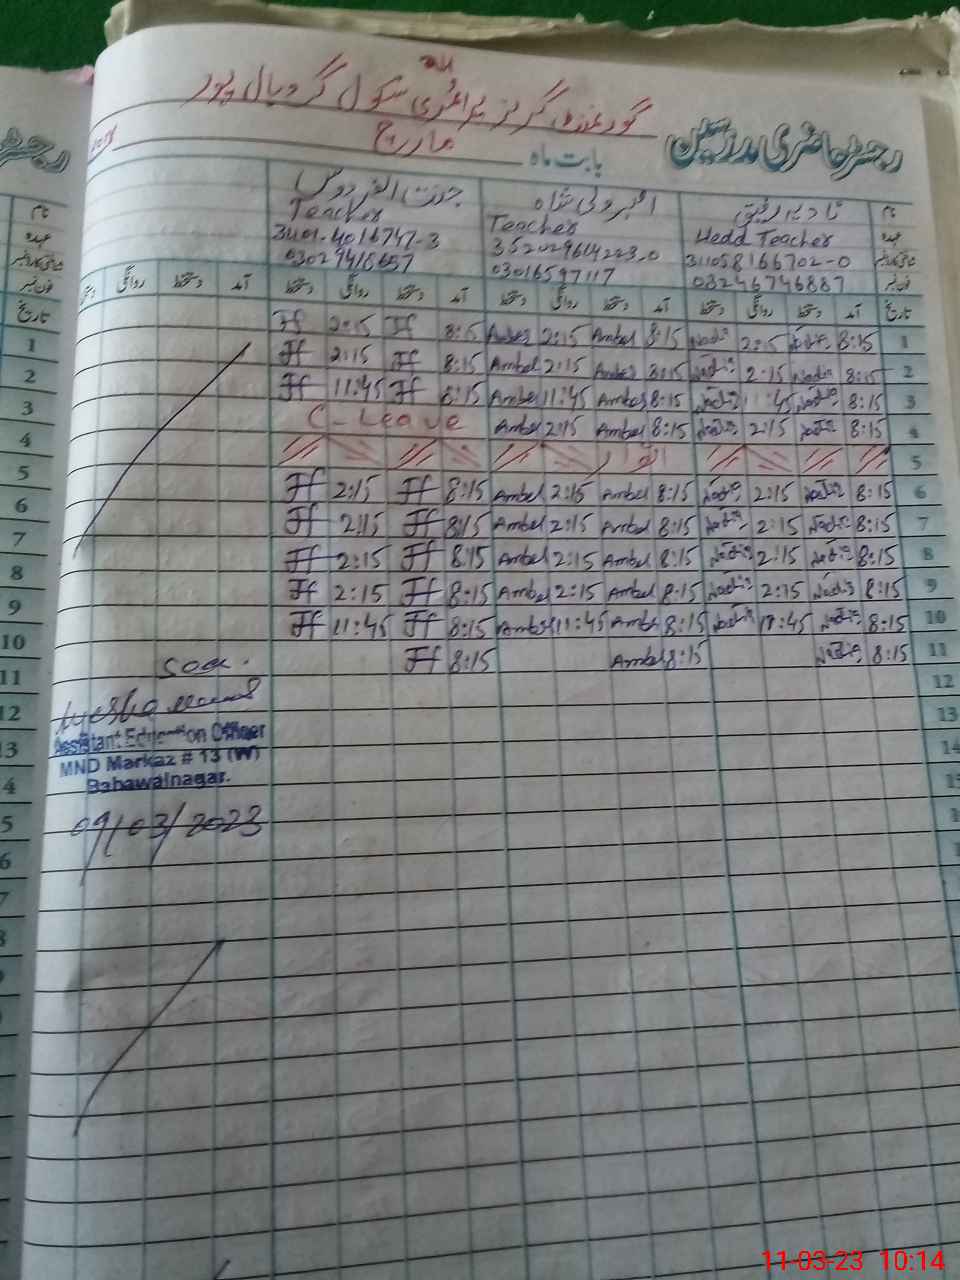 گورنمنٹ گرلز پرائمری سکول گردیال پور
رجسٹر حاضری مدرسین
بابت ماہ مارچ
نام نادیہ رفیق امبر ولی شاہ جنت الفردوس
عہدہ Hedd Teacher Teacher Teacher
311058166702-0 352029614223-0
فون نمبر 03246746887 03016597117 03029418657
تاریخ آمد دستخط روانگی دستخط آمد دستخط روانگی دستخط آمد دستخط روانگی دستخط آمد دستخط روانگی دستخط
1 8:15 Nadia 2:15 Nadia 8:15 Amber 2:15 Amber 8:15 Jf 2:15 Jf 1
2 8:15 Nadia 2:15 Nadia 8:15 Amber 2:15 Amber 8:15 Jf 2:15 Jf 2
3 8:15 Nadia 11:45 Nadia 8:15 Amber 11:45 Amber 8:15 Jf 11:45 Jf 3
4 8:15 Nadia 2:15 Nadia 8:15 Amber 2:15 Amber C-Leave 4
5 اتوار 5
6 8:15 Nadia 2:15 Nadia 8:15 Amber 2:15 Amber 8:15 Jf 2:15 Jf 6
7 8:15 Nadia 2:15 Nadia 8:15 Amber 2:15 Amber 8:15 Jf 2:15 Jf 7
8 8:15 Nadia 2:15 Nadia 8:15 Amber 2:15 Amber 8:15 Jf 2:15 Jf 8
9 8:15 Nadia 2:15 Nadia 8:15 Amber 2:15 Amber 8:15 Jf 2:15 Jf 9
10 8:15 Nadia 11:45 Nadia 8:15 Amber 11:45 Amber 8:15 Jf 11:45 Jf 10
11 8:15 Nadia 8:15 Amber 8:15 Jf 11
12 12
13 13
14
Assistant Education Officer
MND Markaz # 13 (W)
Bahawalnagar.
09/03/2023
11-03-23 10:14